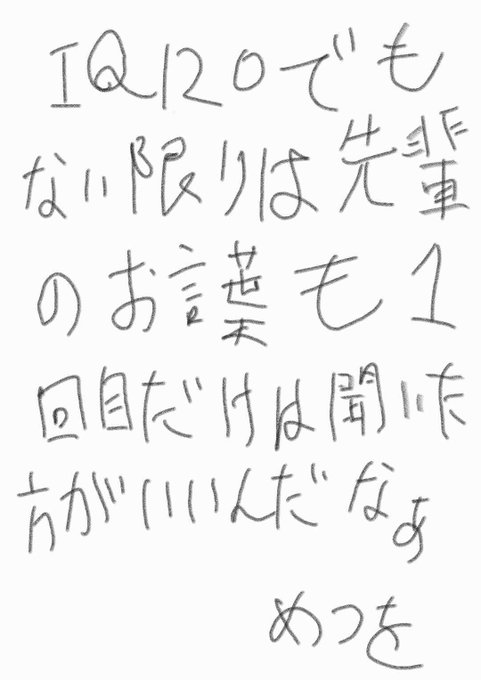 IQ120でも
ない限りは先輩
のお言葉も1
回目だけは聞いた
方がいいんだなぁ
めつを